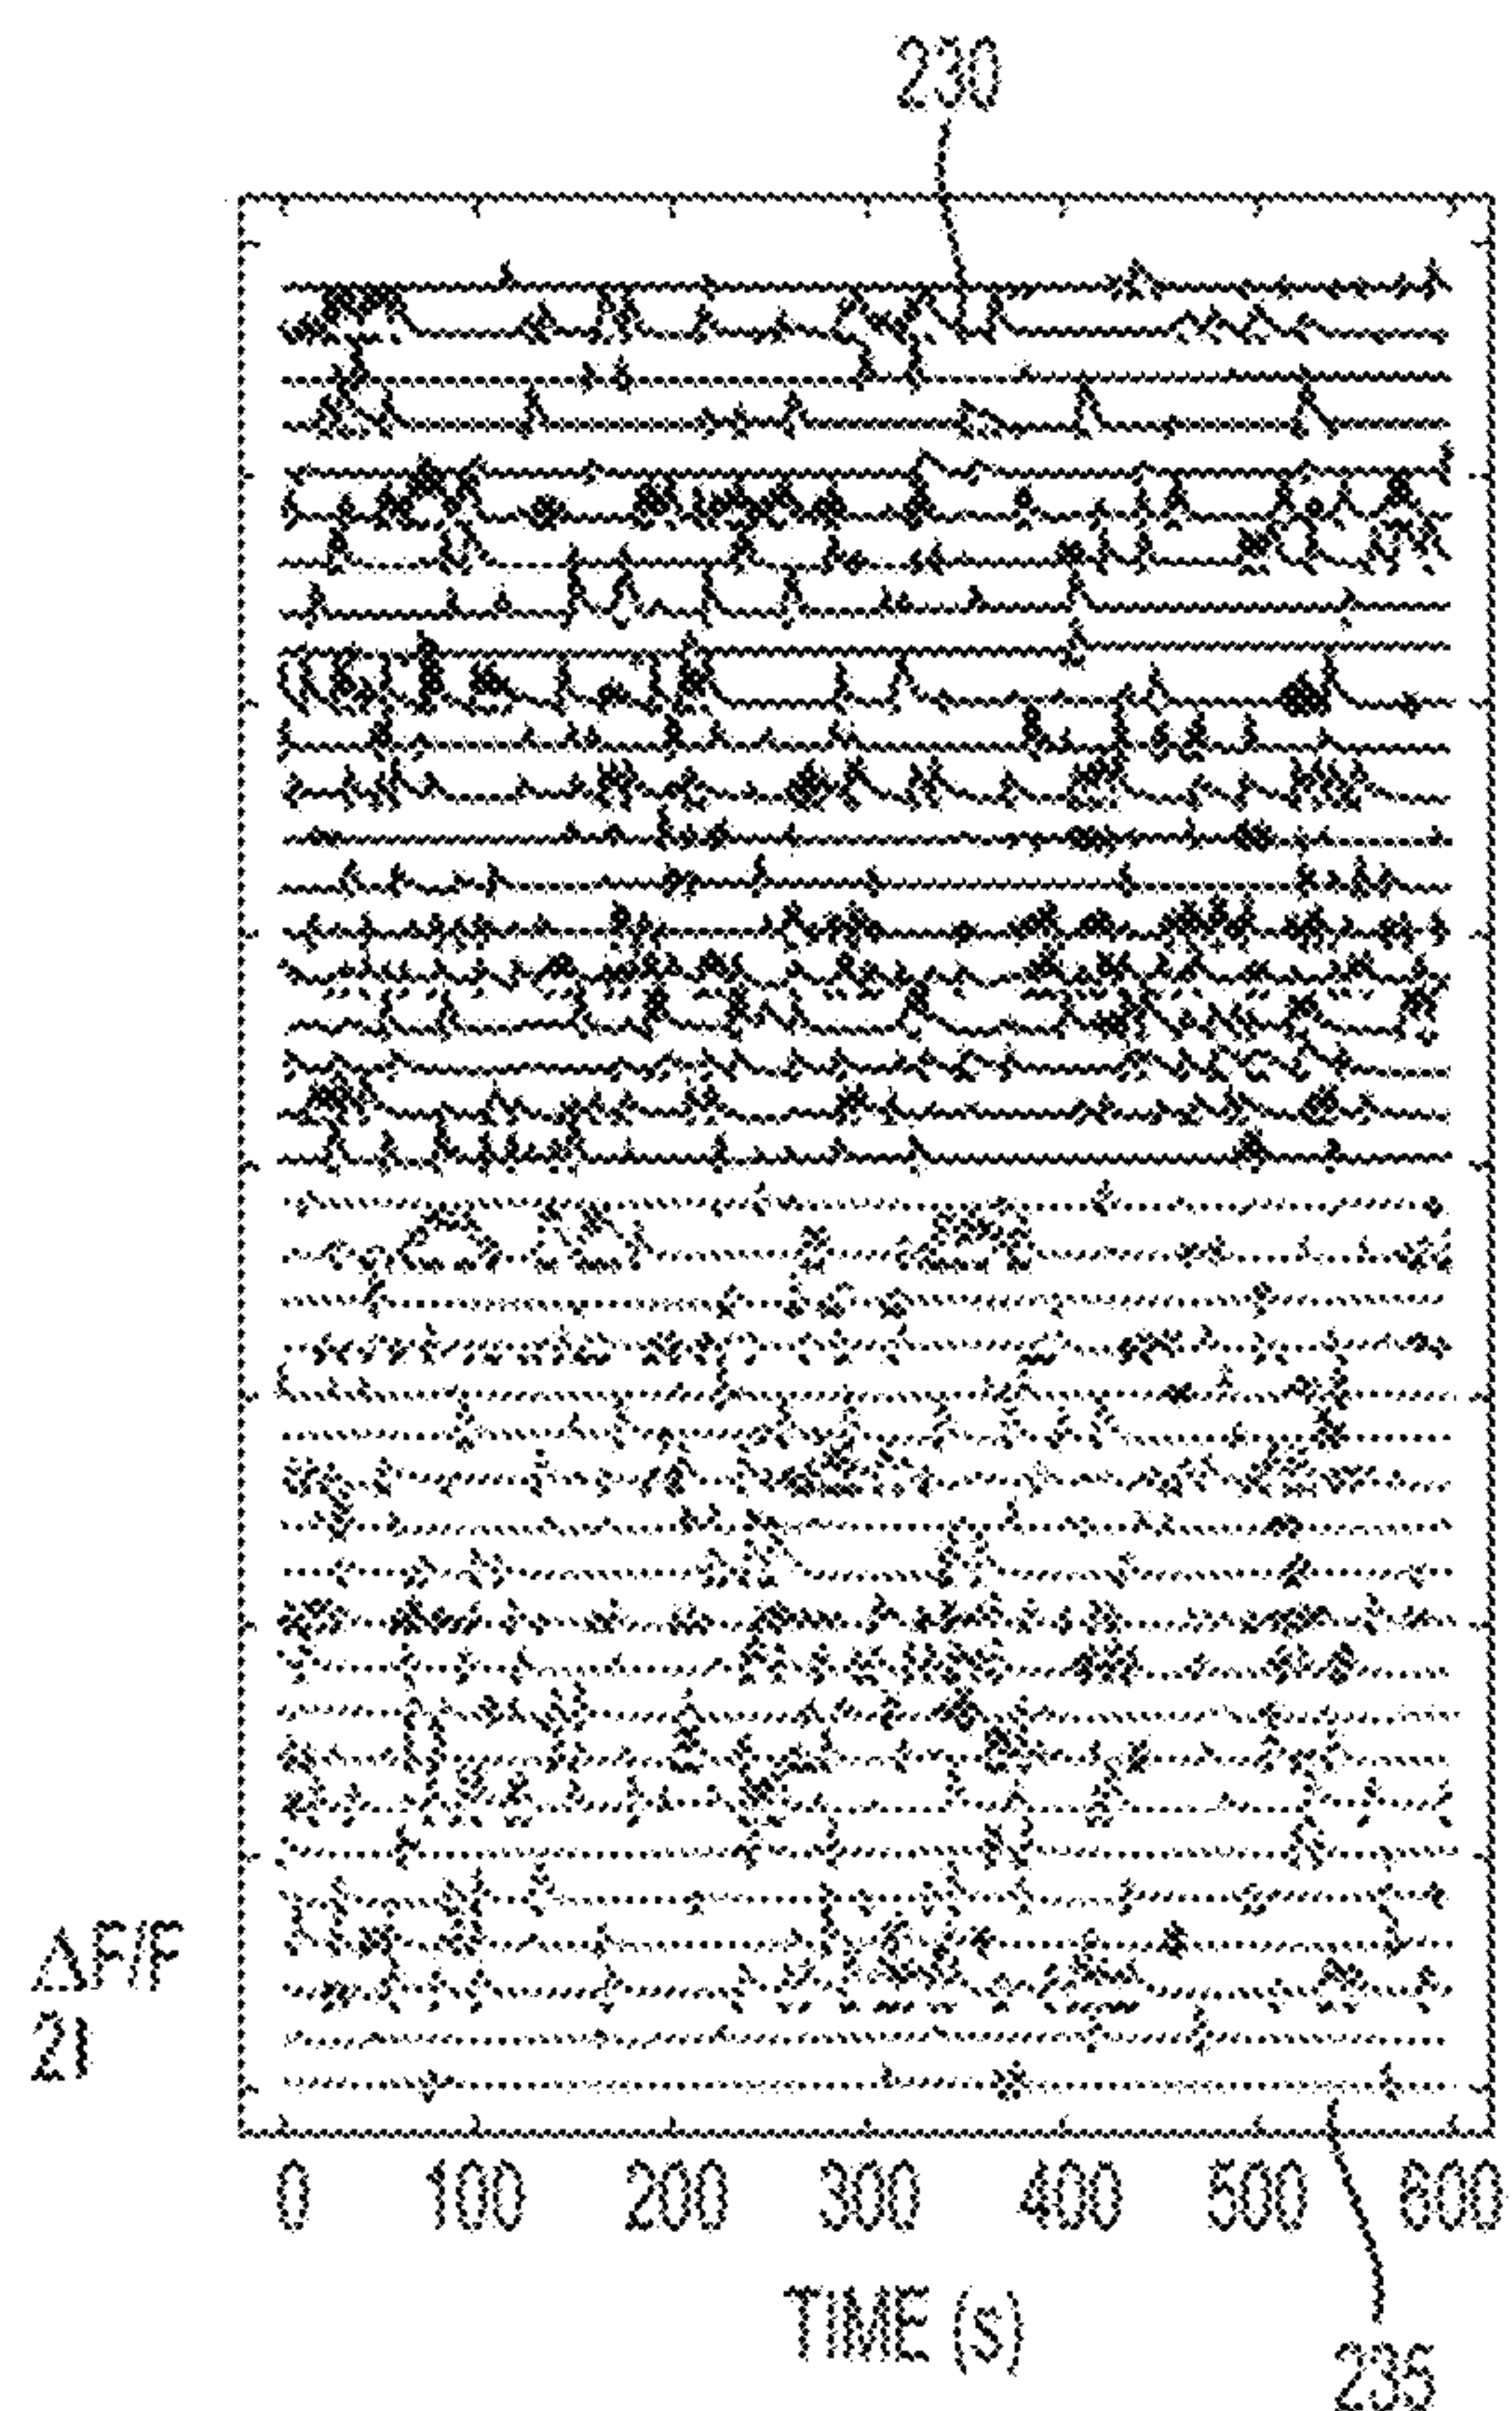 230
ΔF/F
2I
0 100 200 300 400 500 600
TIME (s)
235